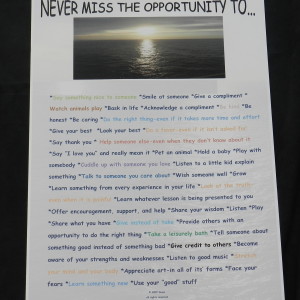 NEVER MISS THE OPPORTUNITY TO...
*Say something nice to someone *Smile at someone *Give a compliment *
Watch animals play *Bask in life *Acknowledge a compliment *Be kind *Be
honest *Be caring *Do the right thing-even if it takes more time and effort
*Give your best *Look your best *Do a favor-even if it isn't asked for
*Say thank you * Help someone else-even when they don't know about it
*Say "I love you" and really mean it *Pet an animal *Hold a baby *Play with
somebody *Cuddle up with someone you love *Listen to a little kid explain
something *Talk to someone you care about *Wish someone well *Grow
*Learn something from every experience in your life *Look at the stars-
even when it is cold *Learn whatever lesson is being presented to you
*Offer encouragement, support, and help *Share your wisdom *Listen *Play
*Share what you have *Give instead of take *Provide others with an
opportunity to do the right thing *Take a leisurely bath *Tell someone about
something good instead of something bad *Give credit to others *Become
aware of your strengths and weaknesses *Listen to good music *Stretch
your mind and your body *Appreciate art-in all of its' forms *Face your
fears *Learn something new *Use your "good" stuff
All rights reserved